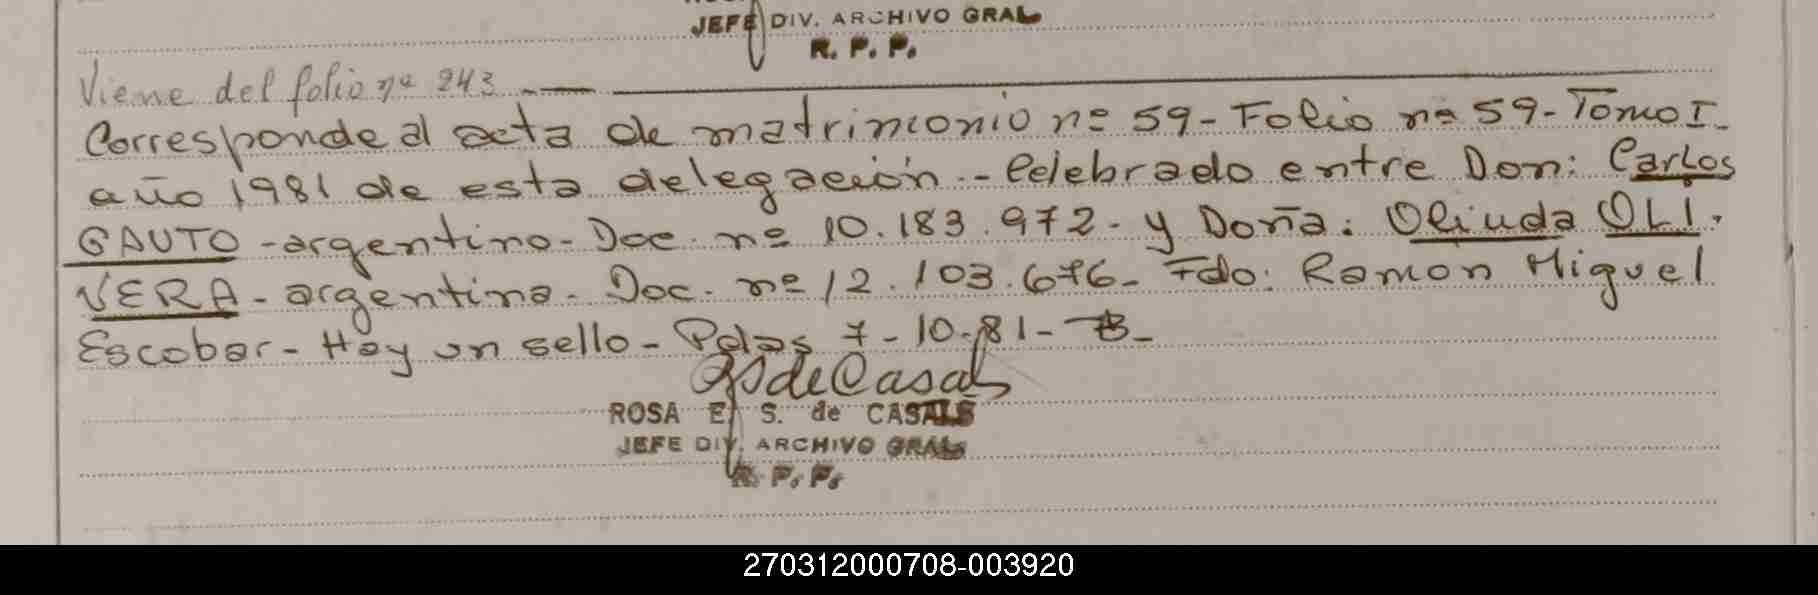 JEFE DIV. ARCHIVO GRAL
R. P. P.
Viene del folio nº 243
Corresponde al acta de matrimonio nº 59 - Folio nº 59 - Tomo I -
año 1981 de esta delegación. - Celebrado entre Don: Carlos
GAUTO - argentino - Doc. nº 10.183.972 - y Doña: Olinda OLI-
VERA - argentina - Doc. nº 12.103.676 - Fdo: Ramon Miguel
Escobar - Hay un sello - Pdas 7-10-81 -
ROSA E. S. de CASALS
JEFE DIV. ARCHIVO GRAL
R. P. P.
270312000708-003920